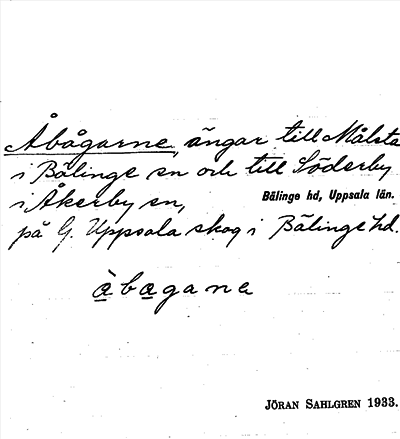 Åbågarne, ängar till Målsta
i Bälinge sn och till Söderby
i Åkerby sn,
Bälinge hd, Uppsala län.
på G. Uppsala skog i Bälinge hd.
àbagane
JÖRAN SAHLGREN 1933.